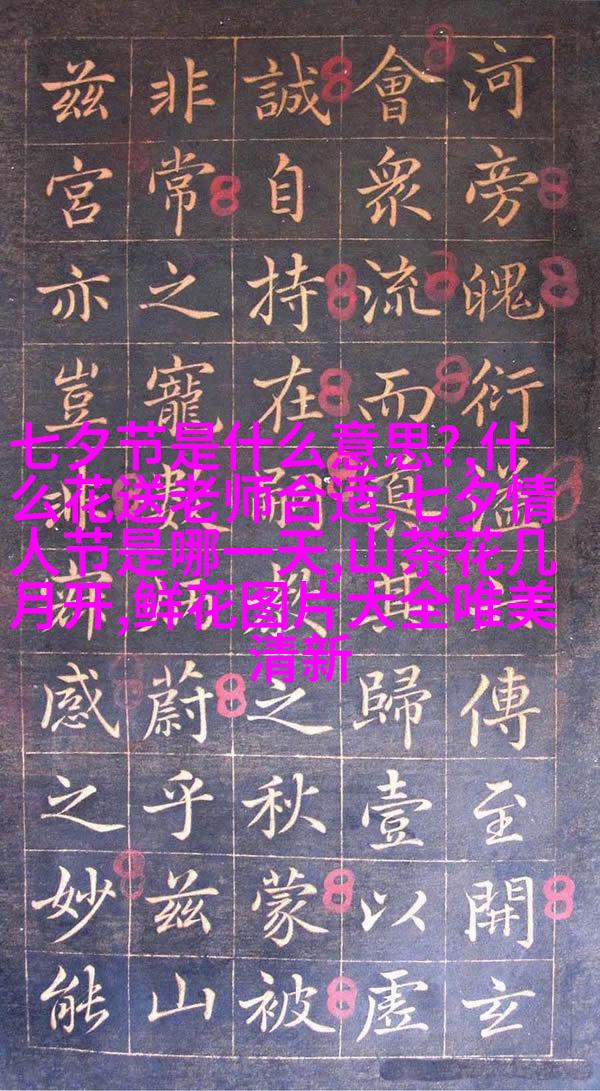 河旁魄衍溢傳至開玄
會衆流而歸壹以虛
誠自持在嗣之秋蒙被
非常之寵蔚乎茲山
茲宮亦豈感之妙能
七夕节是什么意思?,什
么花送老师合适,七夕情
人节是哪一天,山茶花几
月开,鲜花图片大全唯美
清新